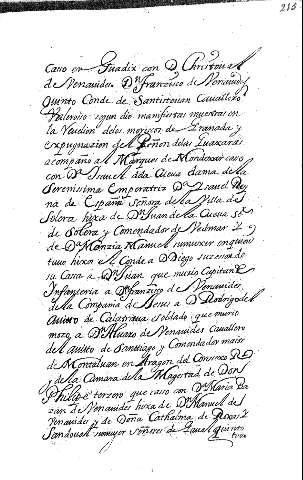 215
Caso en Guadix con D. Christoual
de Venauides. Dn. Francisco de Venauides
quinto Conde de Santisteuan Cauallero
Valeroso segun dio manifiestas muestras en
la de los moriscos de Granada y
expugnacion del Peñon de las Guaxaras
acompaño al Marques de Mondexar caso
con Da. Isauel de la Cueua dama de la
Serenissima Emperatriz Da. Isauel Rey
na de España señora de la Villa de
Solera hixa de Dn. Juan de la Cueua sr.
de Solera y Comendador de Vedmar y
de Da. Manuel su muxer en quien
tuuo hixos el Conde a D. Diego sucesor de
su Casa a Dn. Juan que murio Capitan de
Infanteria a Dn. Francisco de Venauides
de la Compañia de Jesus a D. Rodrigo del
auito de Calatraua soldado que murio
mozo a Dn. Aluaro de Venauides Cauallero
del auito de Santiago y Comendador maior
de Montaluan en Aragon del Consexo R.
y de la Camara de la Magestad de Don
Philipe terzero que caso con Da. Maria Ba
zan de Venauides hixa de Dn. Manuel de
Venauides y de Doña Cathalina de Roxas y
Sandoual su muxer señores de Jaualquinto
tuuo